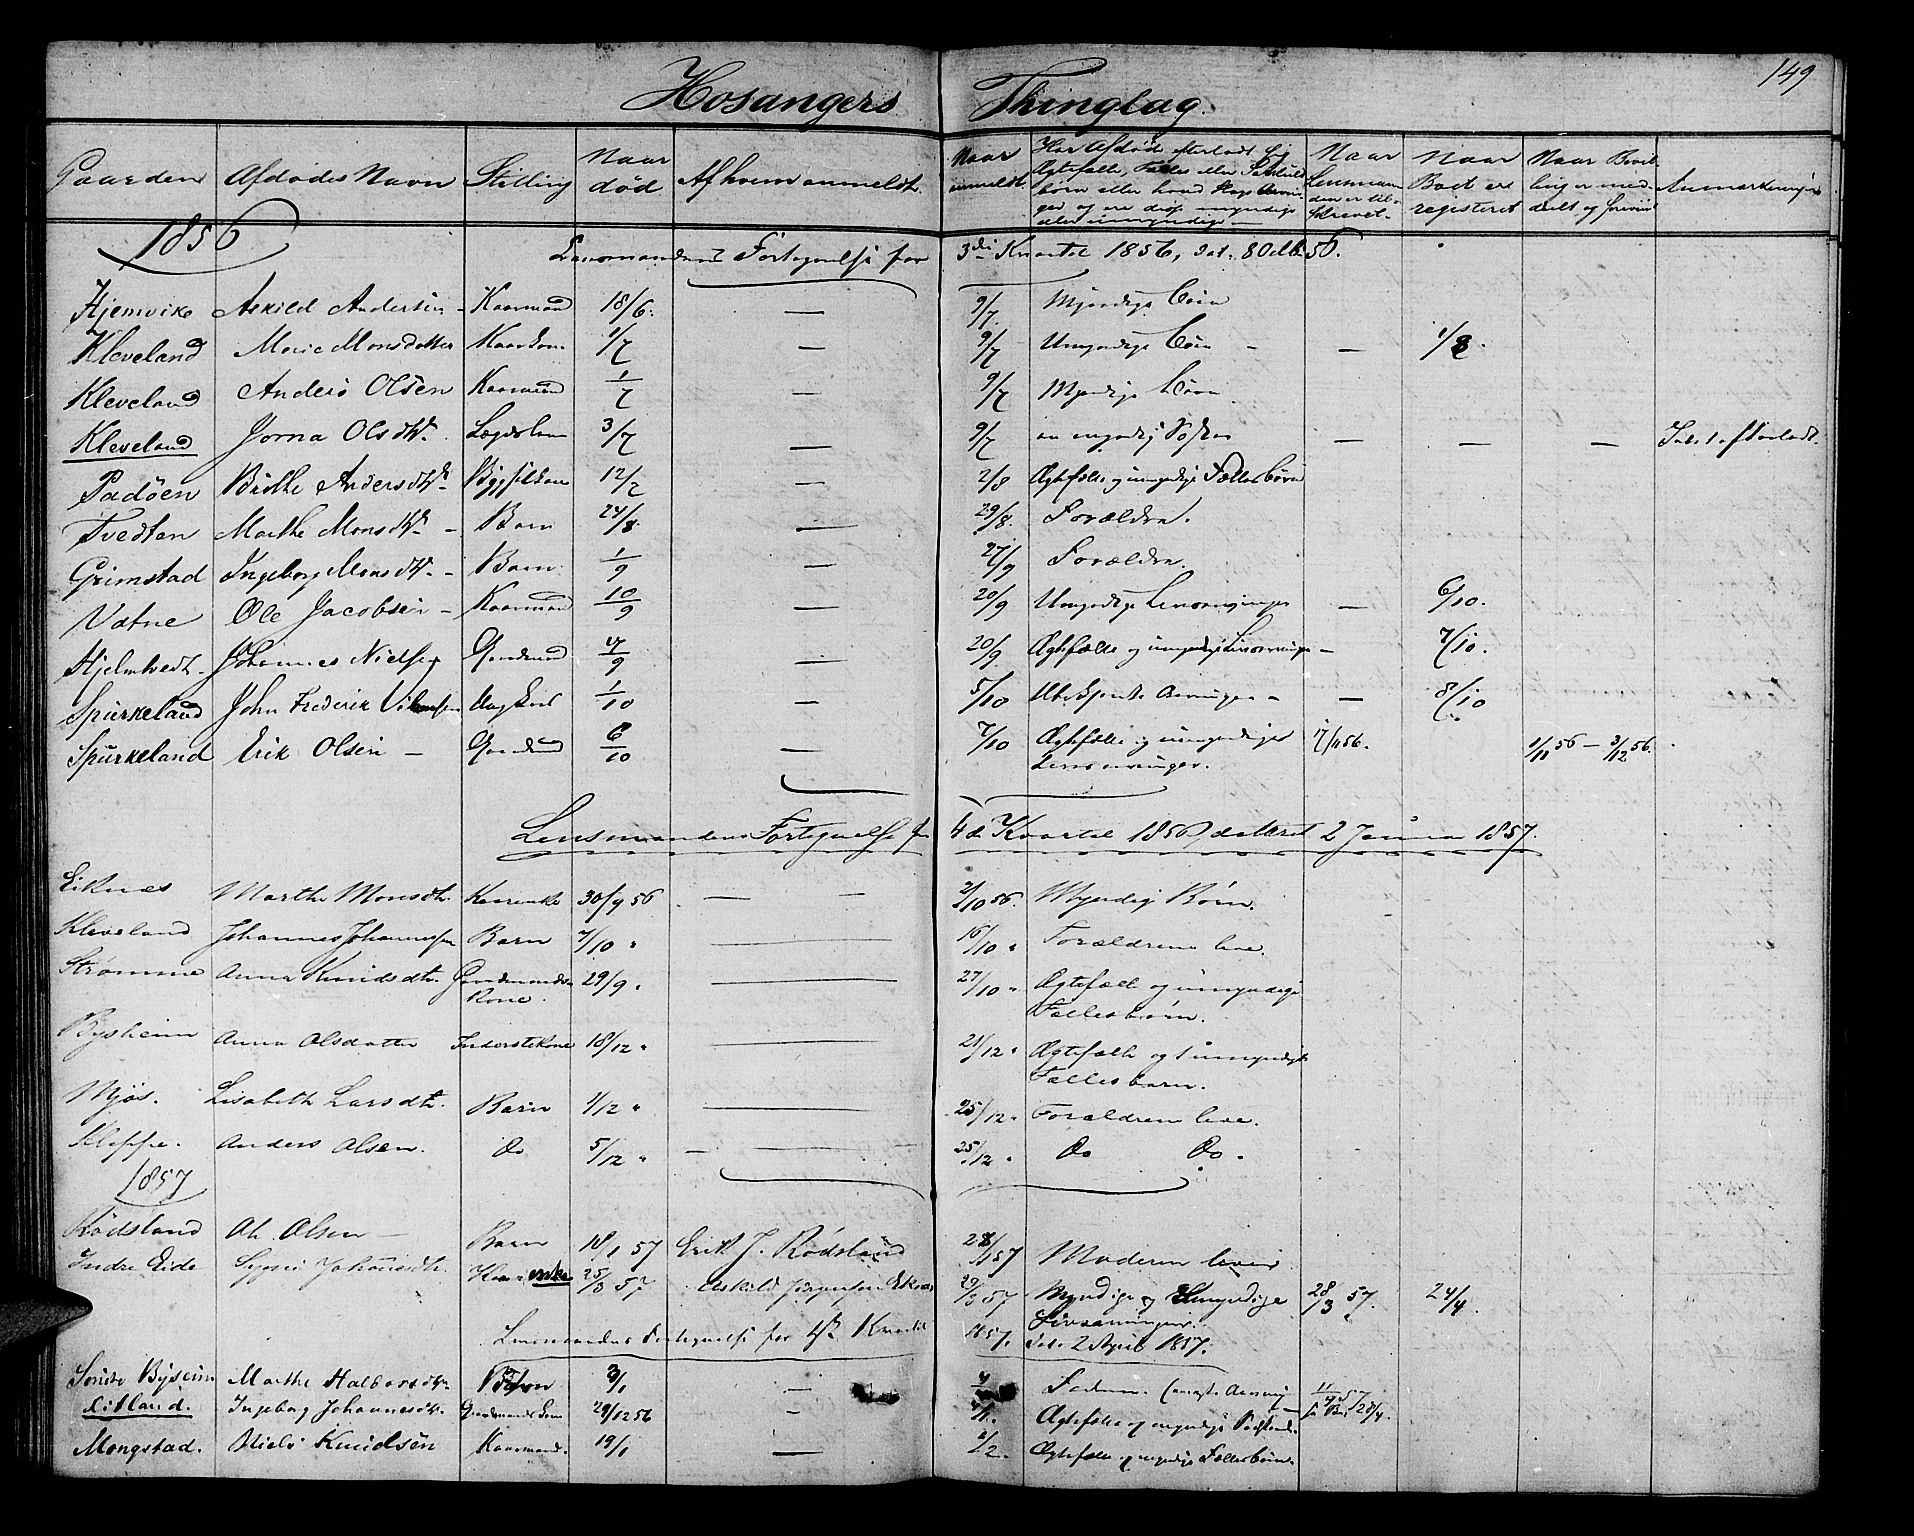 149
Hosangers Thinglag.
Gaarden Afdødes Navn Stilling Naar død Af hvem anmeldt. Naar anmeldt Har Afdøde efterladt sig Ægtefælle, Fælles eller Særkuld børn eller hvad Slags Arvin- ger og ere disse myndige eller umyndige Naar Lensman- den er til- skrevet Naar Boet er registeret Naar Anmærkninger
1856
Lensmandens Fortegnelse for 3die Kvartal 1856, dat. 8 Oktbr 56.
Hjemvike Askild Andersen Kaarmand 18/6. — 9/7. Myndige Børn
Kleveland Marie Monsdatter Kaarkone 1/7 — 9/7 Umyndige Børn — — 1/8.
Kleveland Anders Olsen Kaarmand 1/7 — 9/7 Myndige Børn
Kleveland Jorna Olsdtr. Lægdslem 3/7 — 9/7 en myndig Søster — — — Intet efterladt.
Padøen Birthe Andersdtr. 12/7 — 2/8 Ægtefælle og umyndige Fællesbørn
Tvedten Marthe Monsdtr. — Barn 24/8. — 29/8. Forældre.
Grimstad Ingeborg Monsdtr. — Barn. 1/9 — 27/9 Forældre.
Vatne Ole Jacobsen — Kaarmand 10/9 — 20/9 Umyndige Livsarvinger — 6/10.
Hjelmtvedt. Johannes Nielsen Gaardmand 17/9 — 20/9 Ægtefælle og umyndige Livsarvinger — 7/10.
Spurkeland John Frederik 1/10 — 5/10 Ubekjendte Arvinger — — 8/10
Spurkeland Erik Olsen — Gaardmand 6/10 — 7/10 Ægtefælle og umyndige Livsarvinger. 17/11 56. 1/11 56 — 3/12 56.
Lensmandens Fortegnelse for 4de Kvartal 1856 dateret 2 Januar 1857.
Eiknes Marthe Monsdtr. Kaarenke 30/9 56 — — 2/10 56. Myndig Børn.
Kleveland Johannes Johannessen Barn 7/10 " — 16/10 " Forældrene leve.
Strømme Anna Knudsdtr. Gaardmands Kone. 29/9 " — 27/10 " Ægtefælle og umyndige Fællesbørn.
Bysheim Anna Olsdatter Inderstekone 18/12 " — 21/12 " Ægtefælle og 1 umyndigt Fællesbarn.
Mjøs. Lisabeth Larsdtr. Barn 1/12 " — 25/12 " Forældrene leve.
Kleppe. Anders Olsen. Do 5/12 " — 25/12 " Do Do.
1857
Rødsland Ole Olsen — Barn 18/1 57 Erik J. Rødsland 28/1 57 Moderen lever
Indre Eide Synni Johannesdtr. Kaarenke 25/3 57 Askild Jørgensen Eknes 29/3 57 Myndige og Umyndige Livsarvinger. 28/3 57. 24/4.
Lensmandens Fortegnelse for 1ste Kvartal 1857. dat. 2 April 1857.
Søndre Bysheim Marthe Halvorsdtr. Barn 3/1 — Faderen
Eitland. Ingeborg Johannesdtr. Gaardmands Kone 29/12 56 — Ægtefælle og umyndige 28/4.
Mongstad. Niels Knudsen Kaarmand. 19/1 — 2/2. Ægtefælle og umyndige Fællesbørn.